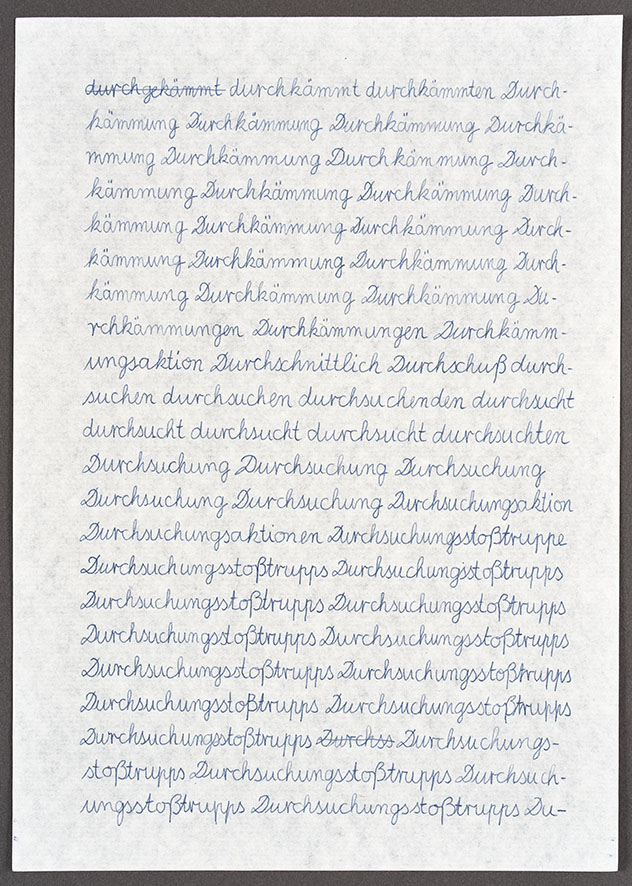 durchgekämmt durchkämmt durchkämmten Durch-
kämmung Durchkämmung Durchkämmung Durchkä-
mmung Durchkämmung Durchkämmung Durch-
kämmung Durchkämmung Durchkämmung Durch-
kämmung Durchkämmung Durchkämmung Durch-
kämmung Durchkämmung Durchkämmung Durch-
kämmung Durchkämmung Durchkämmung Du-
rchkämmungen Durchkämmungen Durchkämm-
ungsaktion Durchschnittlich Durchschuß durch-
suchen durchsuchen durchsuchenden durchsucht
durchsucht durchsucht durchsucht durchsuchten
Durchsuchung Durchsuchung Durchsuchung
Durchsuchung Durchsuchung Durchsuchungsaktion
Durchsuchungsaktionen Durchsuchungsstoßtruppe
Durchsuchungsstoßtrupps Durchsuchungsstoßtrupps
Durchsuchungsstoßtrupps Durchsuchungsstoßtrupps
Durchsuchungsstoßtrupps Durchsuchungsstoßtrupps
Durchsuchungsstoßtrupps Durchsuchungsstoßtrupps
Durchsuchungsstoßtrupps Durchsuchungsstoßtrupps
Durchsuchungsstoßtrupps Durchss Durchsuchungs-
stoßtrupps Durchsuchungsstoßtrupps Durchsuch-
ungsstoßtrupps Durchsuchungsstoßtrupps Du-